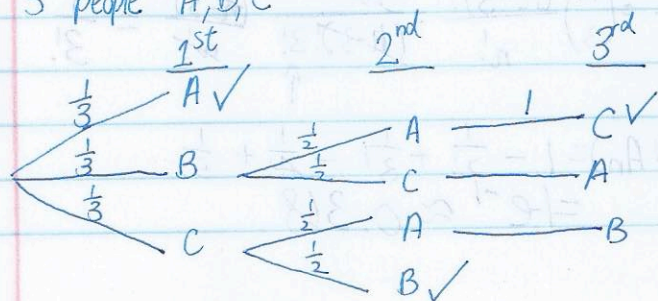 3 people A, B, C
1st 2nd 3rd
1/3 A ✓ 1/2 A 1 C ✓
1/3 B 1/2 C A
1/3 C 1/2 A B
1/2 B ✓